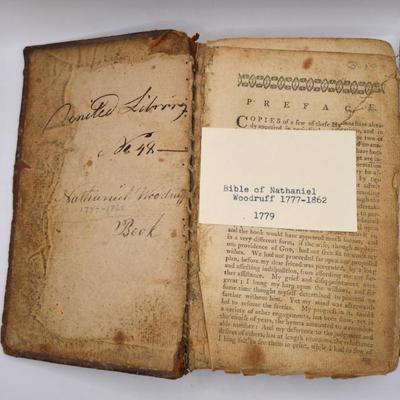 United Library
No 48
Nathaniel Woodruff
1777-1862
Book
PREFACE.
COPIES of a few of these Hymns have alrea-
dy appeared in
Bible of Nathaniel
Woodruff 1777-1862
1779
and the book would have appeared much sooner, and
in a very different form, if the wise, though
ous providence of God, had not seen fit to
wishes. We had not proceeded far upon our proposed
plan, before my dear friend was prevented, by a long
and affecting indisposition, from affording me any
ther assistance. My grief and disappointment were
great; I hung my harp upon the willows, and for
some time thought myself determined to proceed no
farther without him. Yet my mind was afterwards
led to resume the service. My progress in it, amidst
a variety of other engagements, has been slow, yet in
the course of years, the hymns amounted to a consider-
able number: And my deference to the judgment and
desires of others, has at length overcome the reluctance
I long felt to see them in print, while I had so few of